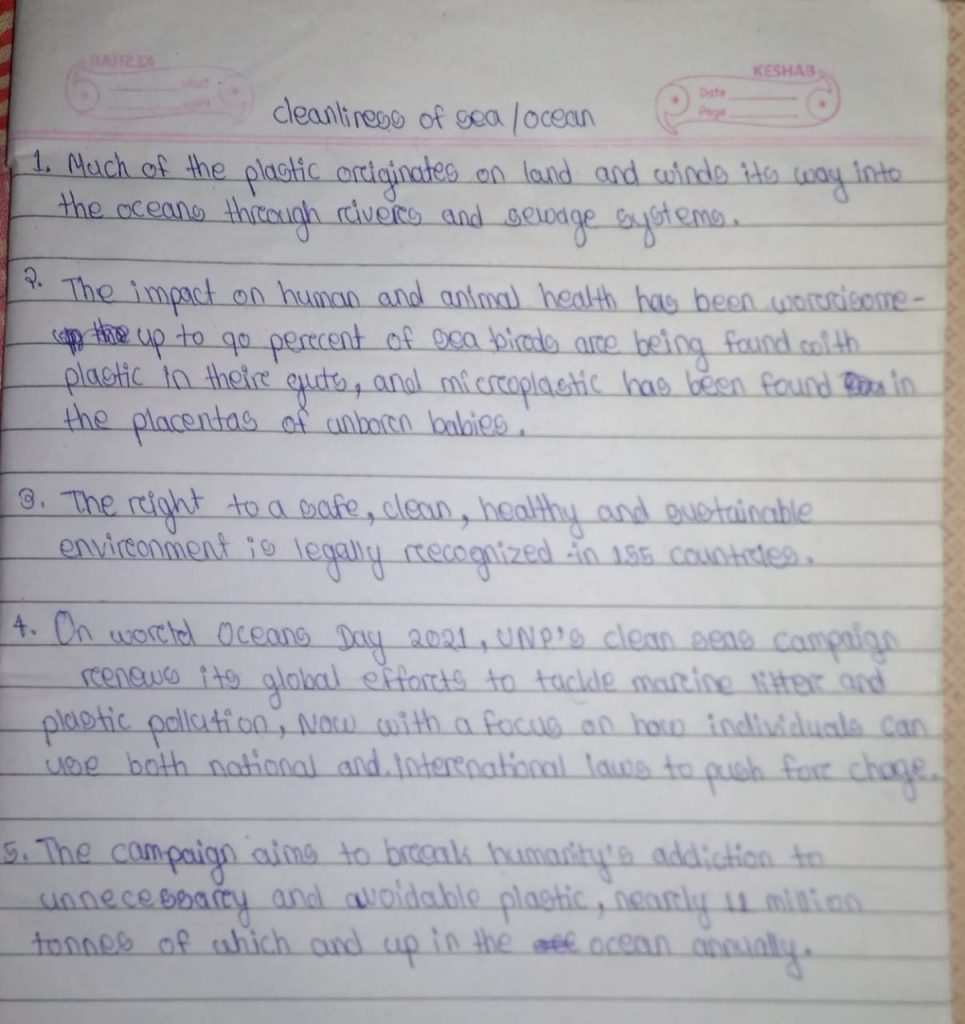 KESHAB
Date
Page
cleanliness of sea / ocean
1. Much of the plastic originates on land and winds its way into
the oceans through rivers and sewage systems.
2. The impact on human and animal health has been worrisome-
up to 90 percent of sea birds are being found with
plastic in their guts, and microplastic has been found in
the placentas of unborn babies.
3. The right to a safe, clean, healthy and sustainable
environment is legally recognized in 155 countries.
4. On world Oceans Day 2021, UNP's clean seas campaign
renews its global efforts to tackle marine litter and
plastic pollution, Now with a focus on how individuals can
use both national and international laws to push for chage.
5. The campaign aims to break humanity's addiction to
unnecessary and avoidable plastic, nearly 11 million
tonnes of which and up in the ocean annually.